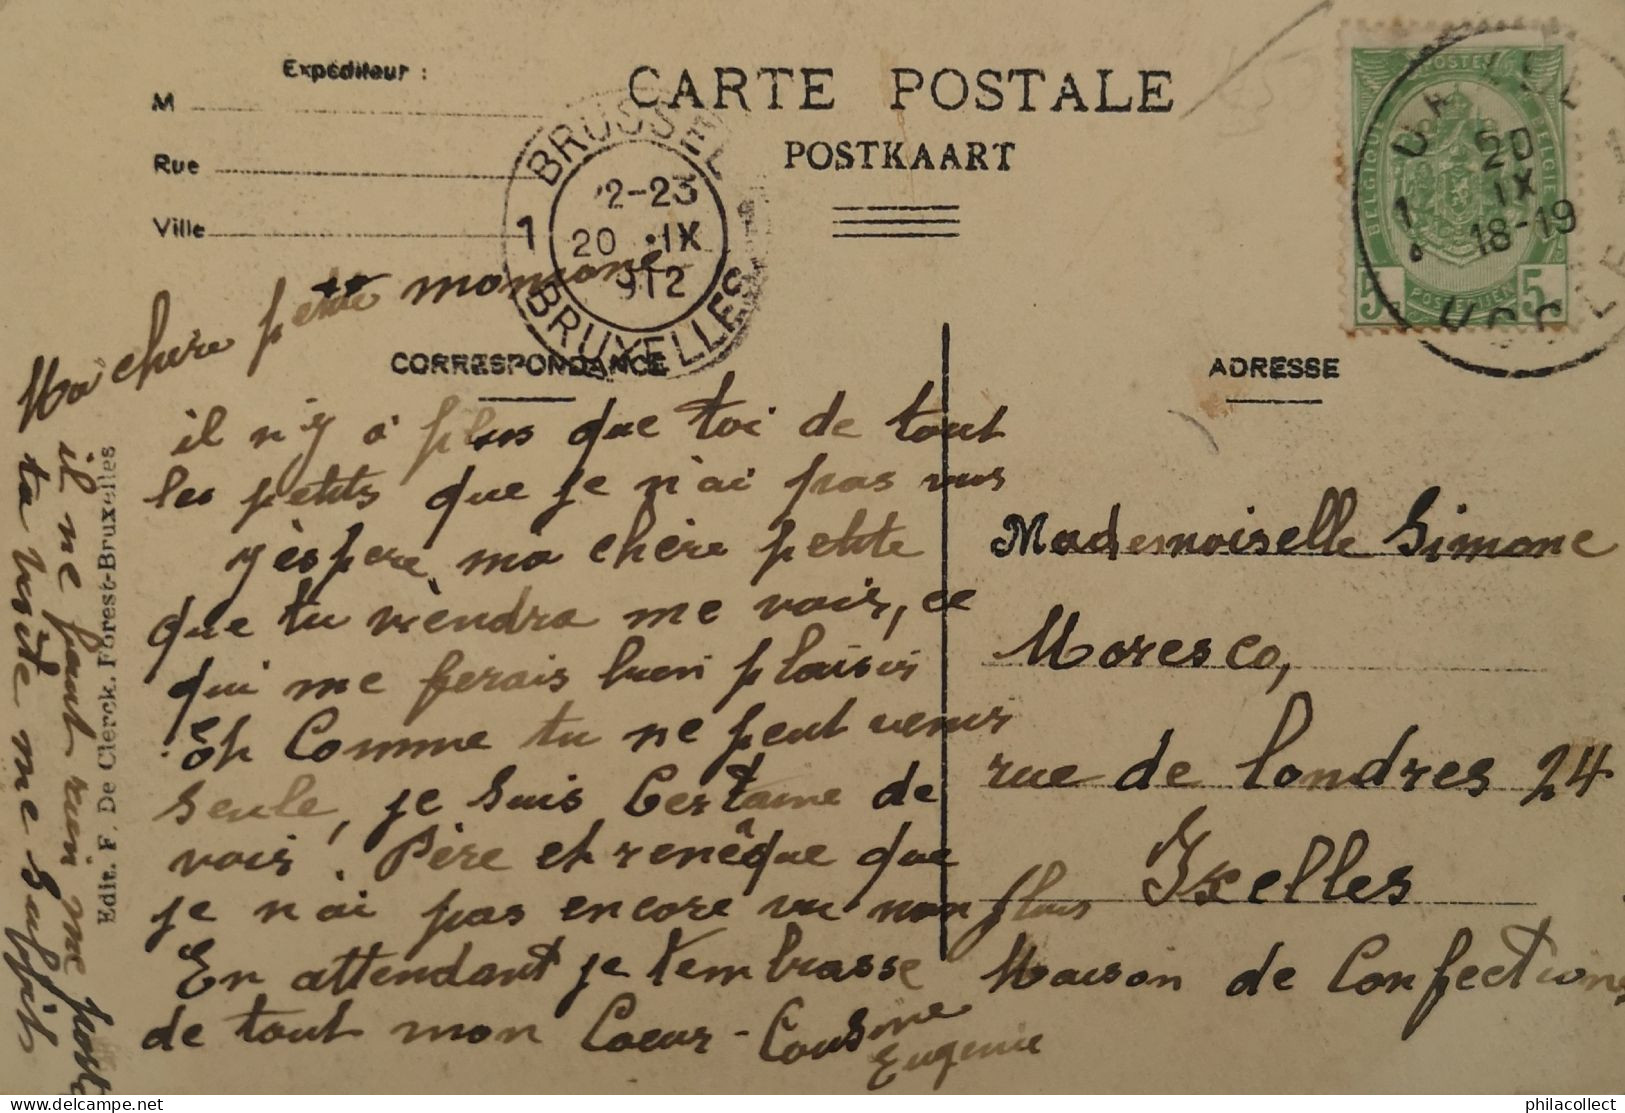 Expéditeur :
M
Rue
Ville
CARTE POSTALE
POSTKAART
BRUSSEL
1
2-23
20 ·IX
912
1
BRUXELLES
POSTES
BELGIQUE
BELGIE
5
POSTERIJEN
5
UKKEL
1
20
IX
18-19
UCCLE
CORRESPONDANCE
ADRESSE
Ma chère petite
il n'y à plus que toi de tout
les petits que je n'ai pas vus
j'èspere, ma chère petite
que tu viendra me voir, ce
qui me ferais bien plaisir
Eh Comme tu ne peut venir
seule, je suis Certaine de
voir. Père et renêque que
je n'ai pas encore vu non plus
En attendant je t'embrasse
de tout mon Coeur - Cousine
Eugenie
il ne faut rien me porté
ta visite me sufit
Edit. F. De Clerck, Forest-Bruxelles
Mademoiselle Simone
Moresco,
rue de Londres 24
Ixelles
Maison de Confections
philacollect